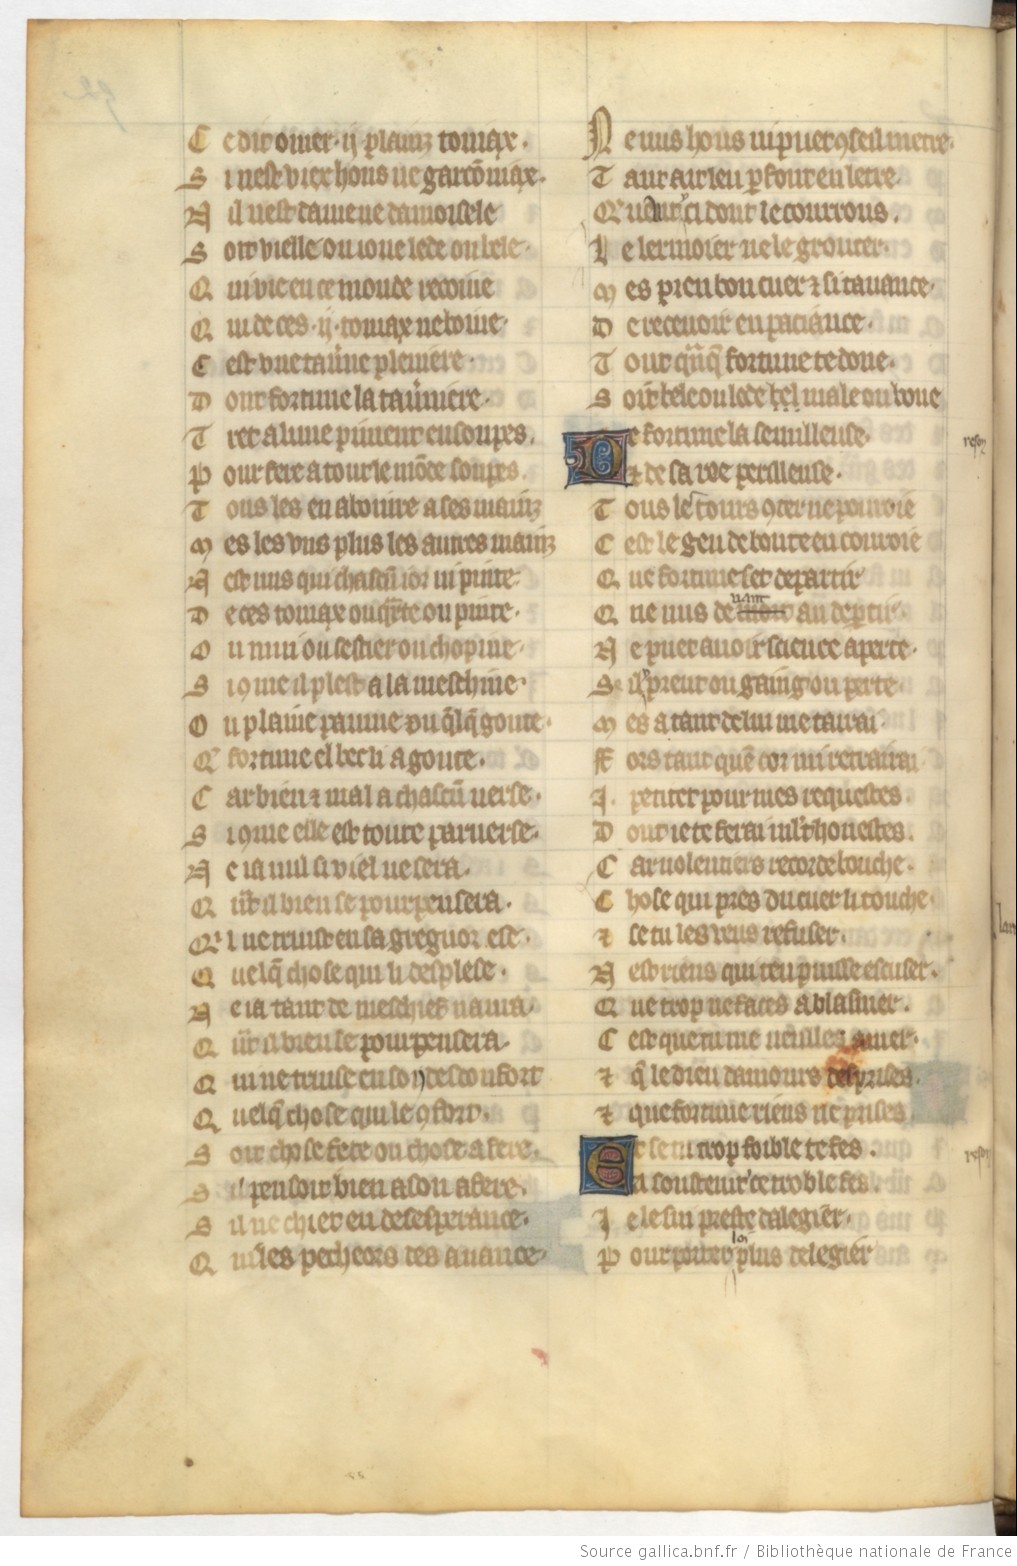 C e dit omer .ij. plainz toniax.
S i nest viex hons ne garcōniax.
N il nest dame ne damoisele
S oit vielle ou ioue lede ou bele.
Q ui vie en ce monde recoiue
Q ui de ces .ij. toniax ne boiue.
C est vne tau̾ne pleniere.
D ont fortune la tau̾niere.
T ret aluine piment en soupes.
P our fere a tout le mōde soupes.
T ous les en aboiure a ses mainz
M es les vns plus les autres mainz
N est nus qui chascū ior ni pinte
D e ces toniax ou q̄rte ou pinte.
O u mui ou sestier ou chopine.
S i 9me il plest a la meschine.
O u plaine paume ou q̄lq̄ goute.
Q̾ fortune el bec li agoute.
C ar bien ⁊ mal a chascū uerse.
S i 9me elle est toute paruerse.
N e ia nul si viel ne sera.
Q ūt il bien se pourpensera.
Q̾ l ne truist en sa gregnor ese.
Q uelq̄ chose qui li desplese.
N e ia tant de meschief naura
Q ūt il bien se pourpensera.
Q ui ne truise en son desconfort
Q uelq̄ chose qui le 9fort.
S oit chose fete ou chose a fere.
S il pensoit bien a son afere.
S il ne chiet en desesperance.
Q ui les pecheors desauance.
N e nus hons ni puet 9seil metre.
T ant ait leu p̄font en letre.
Q ue taut ci dont le courrous.
L e lermoier ne le grouter.
M es pren bon cuer ⁊ si tauance.
D e receuoir en paciance.
T out qūq̄ fortune te done.
S oit bele ou lede bel male ou bone
D e fortune la semilleuse.
⁊ de sa roe perilleuse.
reson
T ous les tours 9ter ne pourroie
C est le geu de boute en couroie
Q ue fortune set departir
Q ue nus deuant au dep̄tir.
N e puet auoir science aperte.
S il i prent ou gaing ou perte.
M es a tant de lui me tairai.
F ors tant quē cor mi retrairai
J . petitet pour mes requestes.
D ont ie te ferai honestes.
C ar uolentiers recorde bouche.
C hose qui pres du cuer li touche.
⁊ se tu les veus refuser.
N est riens qui ten puisse escuser.
Q ue trop ne faces a blasmer.
C est que tu me ueulles amer.
⁊ q̄ le dieu damours desprises.
⁊ que fortune riens ne prises.
E t se tu trop foible te fes.
A soustenir ce troble fes.
reson
J e le sui preste dalegier.
P our porter loi plus de legier
Source gallica.bnf.fr / Bibliothèque nationale de France